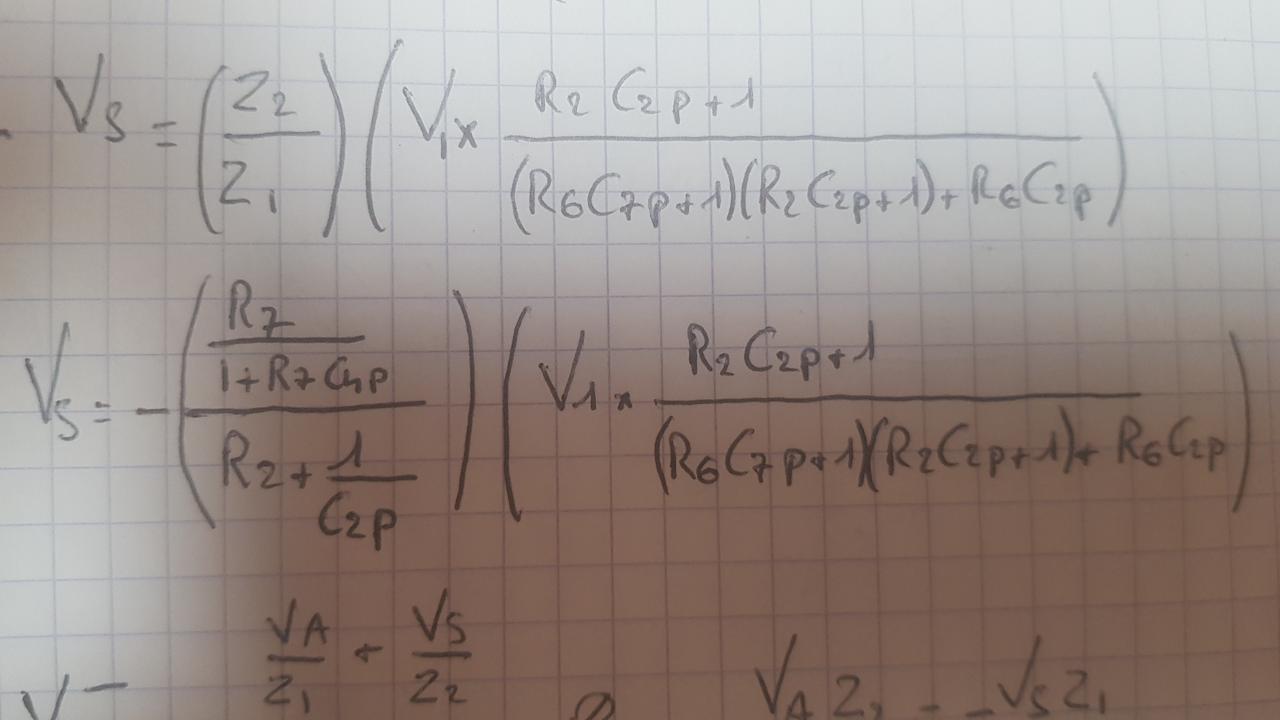 - Vs = (Z2 / Z1) (V1 × (R2 C2p + 1) / ((R6C7p + 1)(R2C2p + 1) + R6C2p))
Vs = - ((R7 / (1 + R7 C4p)) / (R2 + 1 / C2p)) (V1 × (R2 C2p + 1) / ((R6C7p + 1)(R2C2p + 1) + R6C2p))
V- VA/Z1 + VS/Z2 VA Z2 = -VS Z1